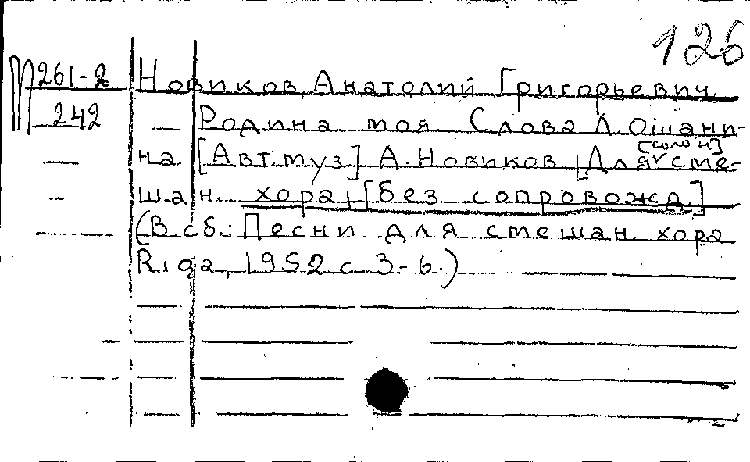 126
П261-2 Новиков, Анатолий Григорьевич.
242 Родина моя Слова Л. Ошани-
[соло и]
на [Авт. муз.] А. Новиков, Для сме-
шан. хора, [без сопровожд.]
(В сб.: Песни для смешан хора
Rīga, 1952 с. 3-6.)